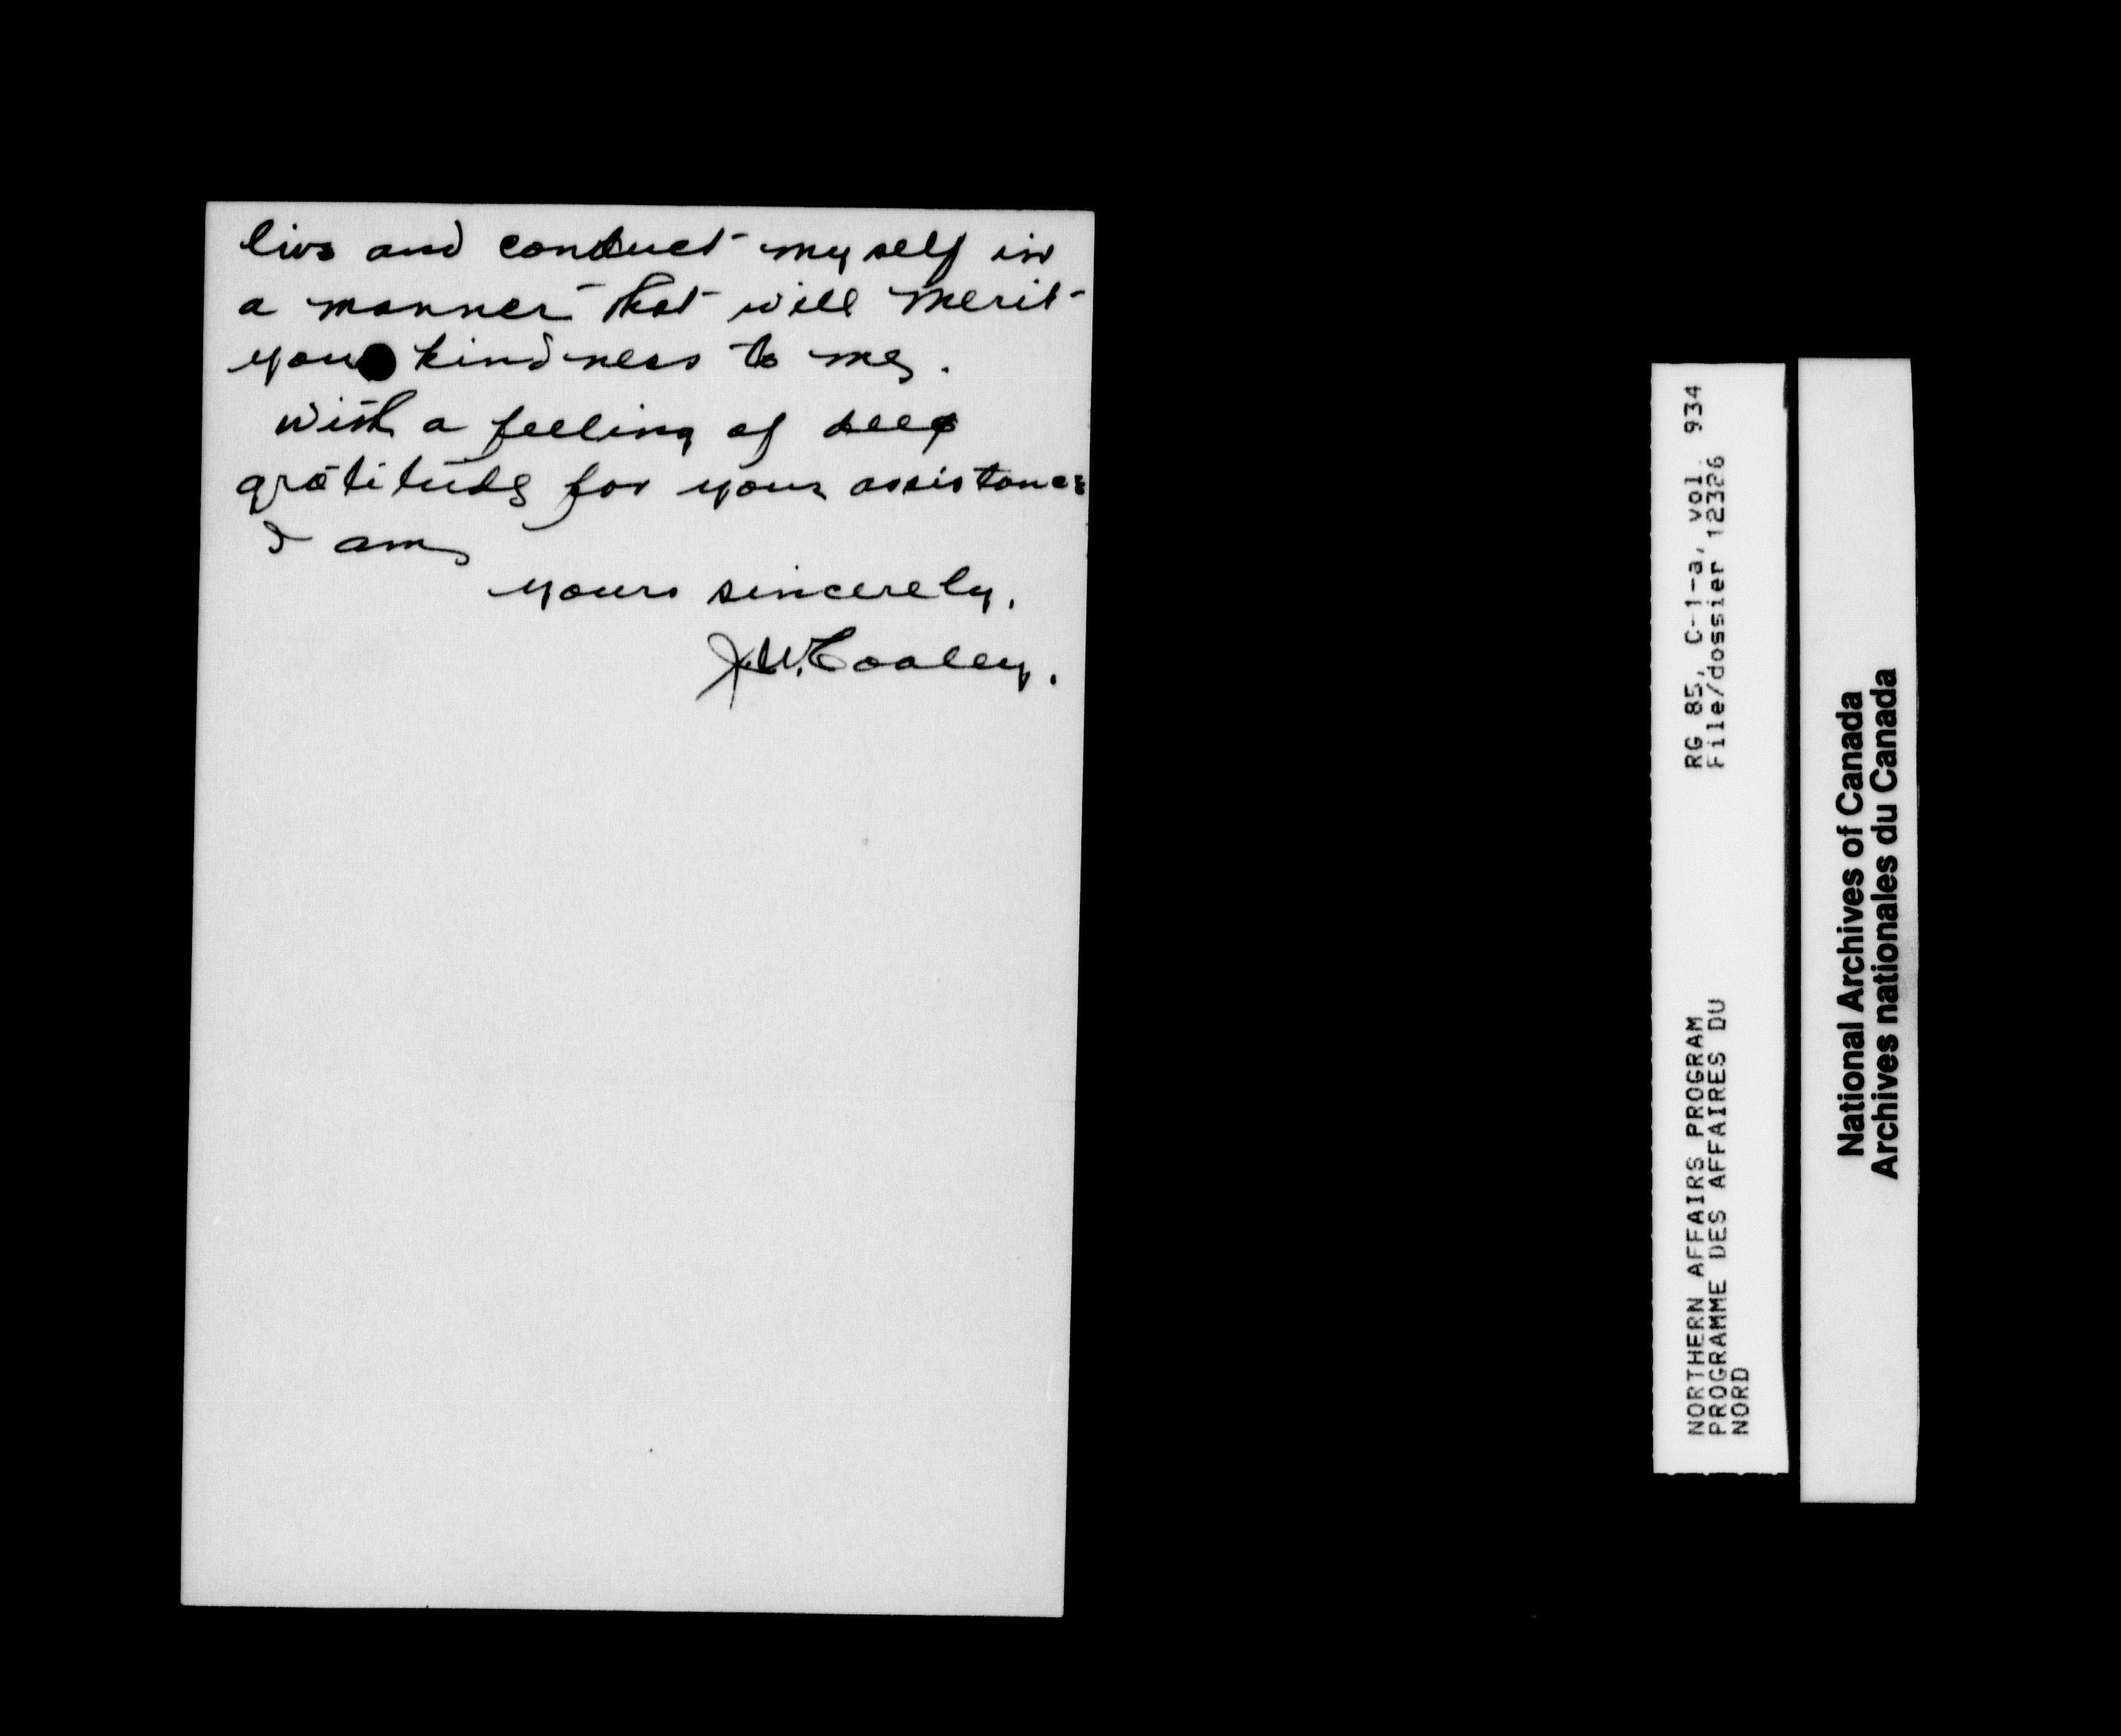 live and conduct myself in
a manner that will merit
your kindness to me.
with a feeling of deep
gratitude for your assistance
I am
yours sincerely.
J.W. Cooley.
RG 85, C-1-a, vol. 934
File/dossier 12326
NORTHERN AFFAIRS PROGRAM
PROGRAMME DES AFFAIRES DU
NORD
National Archives of Canada
Archives nationales du Canada